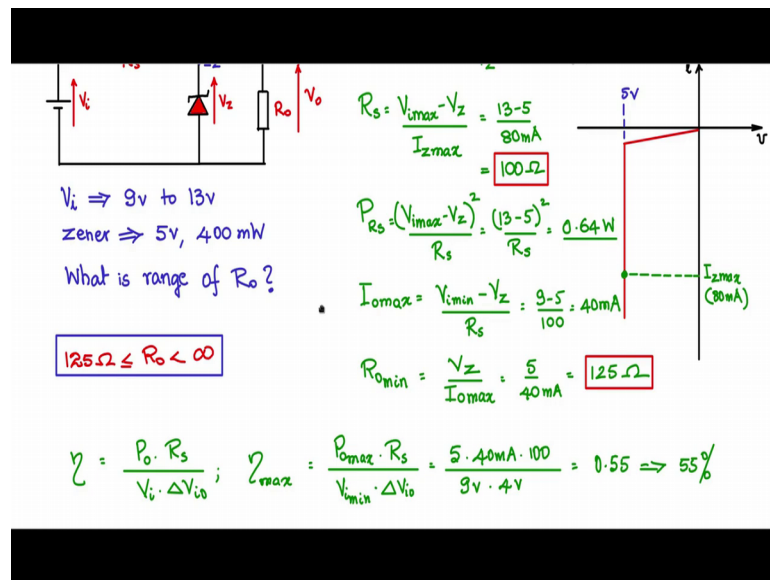 Vi
Vz
Ro
Vo
Vi ⇒ 9v to 13v
zener ⇒ 5v, 400 mW
What is range of Ro?
125Ω ≤ Ro < ∞
Rs = (Vimax - Vz) / Izmax = (13-5) / 80mA
= 100Ω
PRs = (Vimax - Vz)² / Rs = (13-5)² / Rs = 0.64W
Iomax = (Vimin - Vz) / Rs = (9-5) / 100 = 40mA
Romin = Vz / Iomax = 5 / 40mA = 125Ω
5V
i
v
Izmax
(80mA)
η = (Po · Rs) / (Vi · ΔVio) ; ηmax = (Pomax · Rs) / (Vimin · ΔVio) = (5 · 40mA · 100) / (9v · 4v) = 0.55 ⇒ 55%